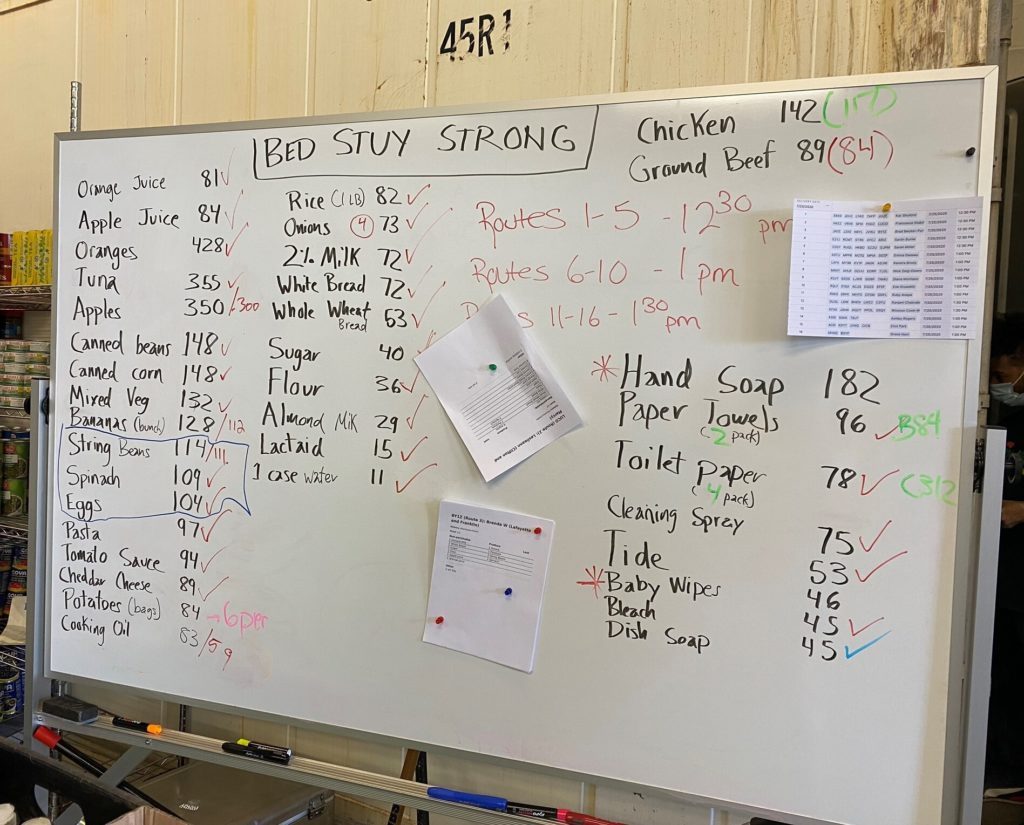 45R1
BED STUY STRONG
Chicken 142 (117)
Ground Beef 89 (84)
Orange Juice 81 ✓
Apple Juice 84 ✓
Oranges 428 ✓
Tuna 355 ✓
Apples 350/300
Canned beans 148 ✓
Canned corn 148 ✓
Mixed Veg 132 ✓
Bananas (bunch) 128/112
String Beans 114/111
Spinach 109 ✓
Eggs 104 ✓
Pasta 97 ✓
Tomato Sauce 94 ✓
Cheddar Cheese 89 ✓
Potatoes (bags) 84 → 6 per
Cooking Oil 83/59
Rice (1 LB) 82 ✓
Onions (4) 73 ✓
2% Milk 72 ✓
White Bread 72 ✓
Whole Wheat 63 ✓
Bread
Sugar 40 ✓
Flour 36 ✓
Almond Milk 29 ✓
Lactaid 15 ✓
1 case water 11 ✓
Routes 1-5 - 12 30 pm
Routes 6-10 - 1 pm
11-16 - 1 30 pm
* Hand Soap 182
Paper Towels 96 ✓ B84
(2 pack)
Toilet Paper 78 ✓ (312
(4 pack)
Cleaning Spray 75 ✓
Tide 53 ✓
* Baby Wipes 46
Bleach 45 ✓
Dish Soap 45 ✓
(Route 3): Brenda W (Lafayette
and Franklin)